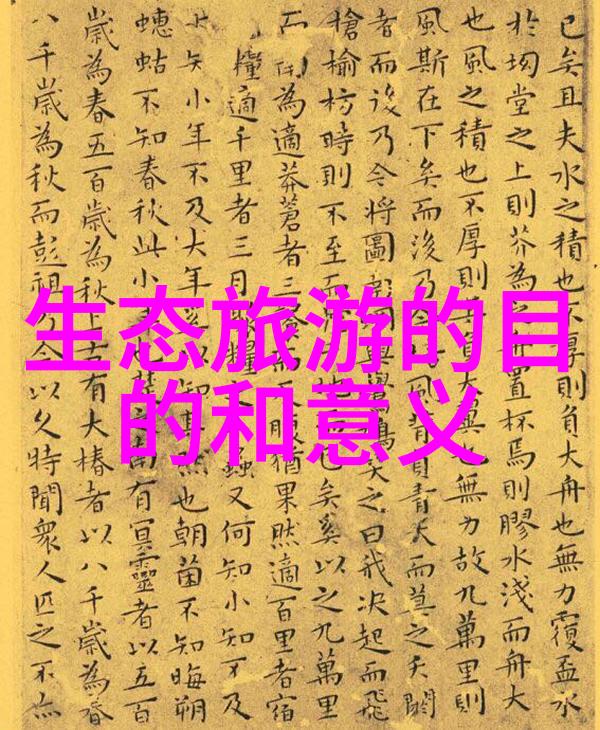 生态旅游的目
的和意义
已矣且夫水之積也不厚則負大舟也無力覆盃水
於坳堂之上則芥為之舟置杯焉則膠水淺而舟大
也風之積也不厚則其負大翼也無力故九萬里則
風斯在下矣而後乃今風背負青天而莫之夭閼
者而後乃今將圖南蜩與鷽鳩笑之曰我决起而飛
搶榆枋時則不至而地而已矣奚以之九萬里
而為適莽蒼者三而反腹猶果然適百里者宿
糧適千里者三月糧之蟲又何知小知不及
大知小年不及大年奚以知其然也朝菌不知晦朔
蟪蛄不知春秋此小年也楚之南有冥靈者以五百
歲為春五百歲為秋上古有大椿者以八千歲為春
八千歲為秋而彭祖乃今以久特聞衆人匹之不亦